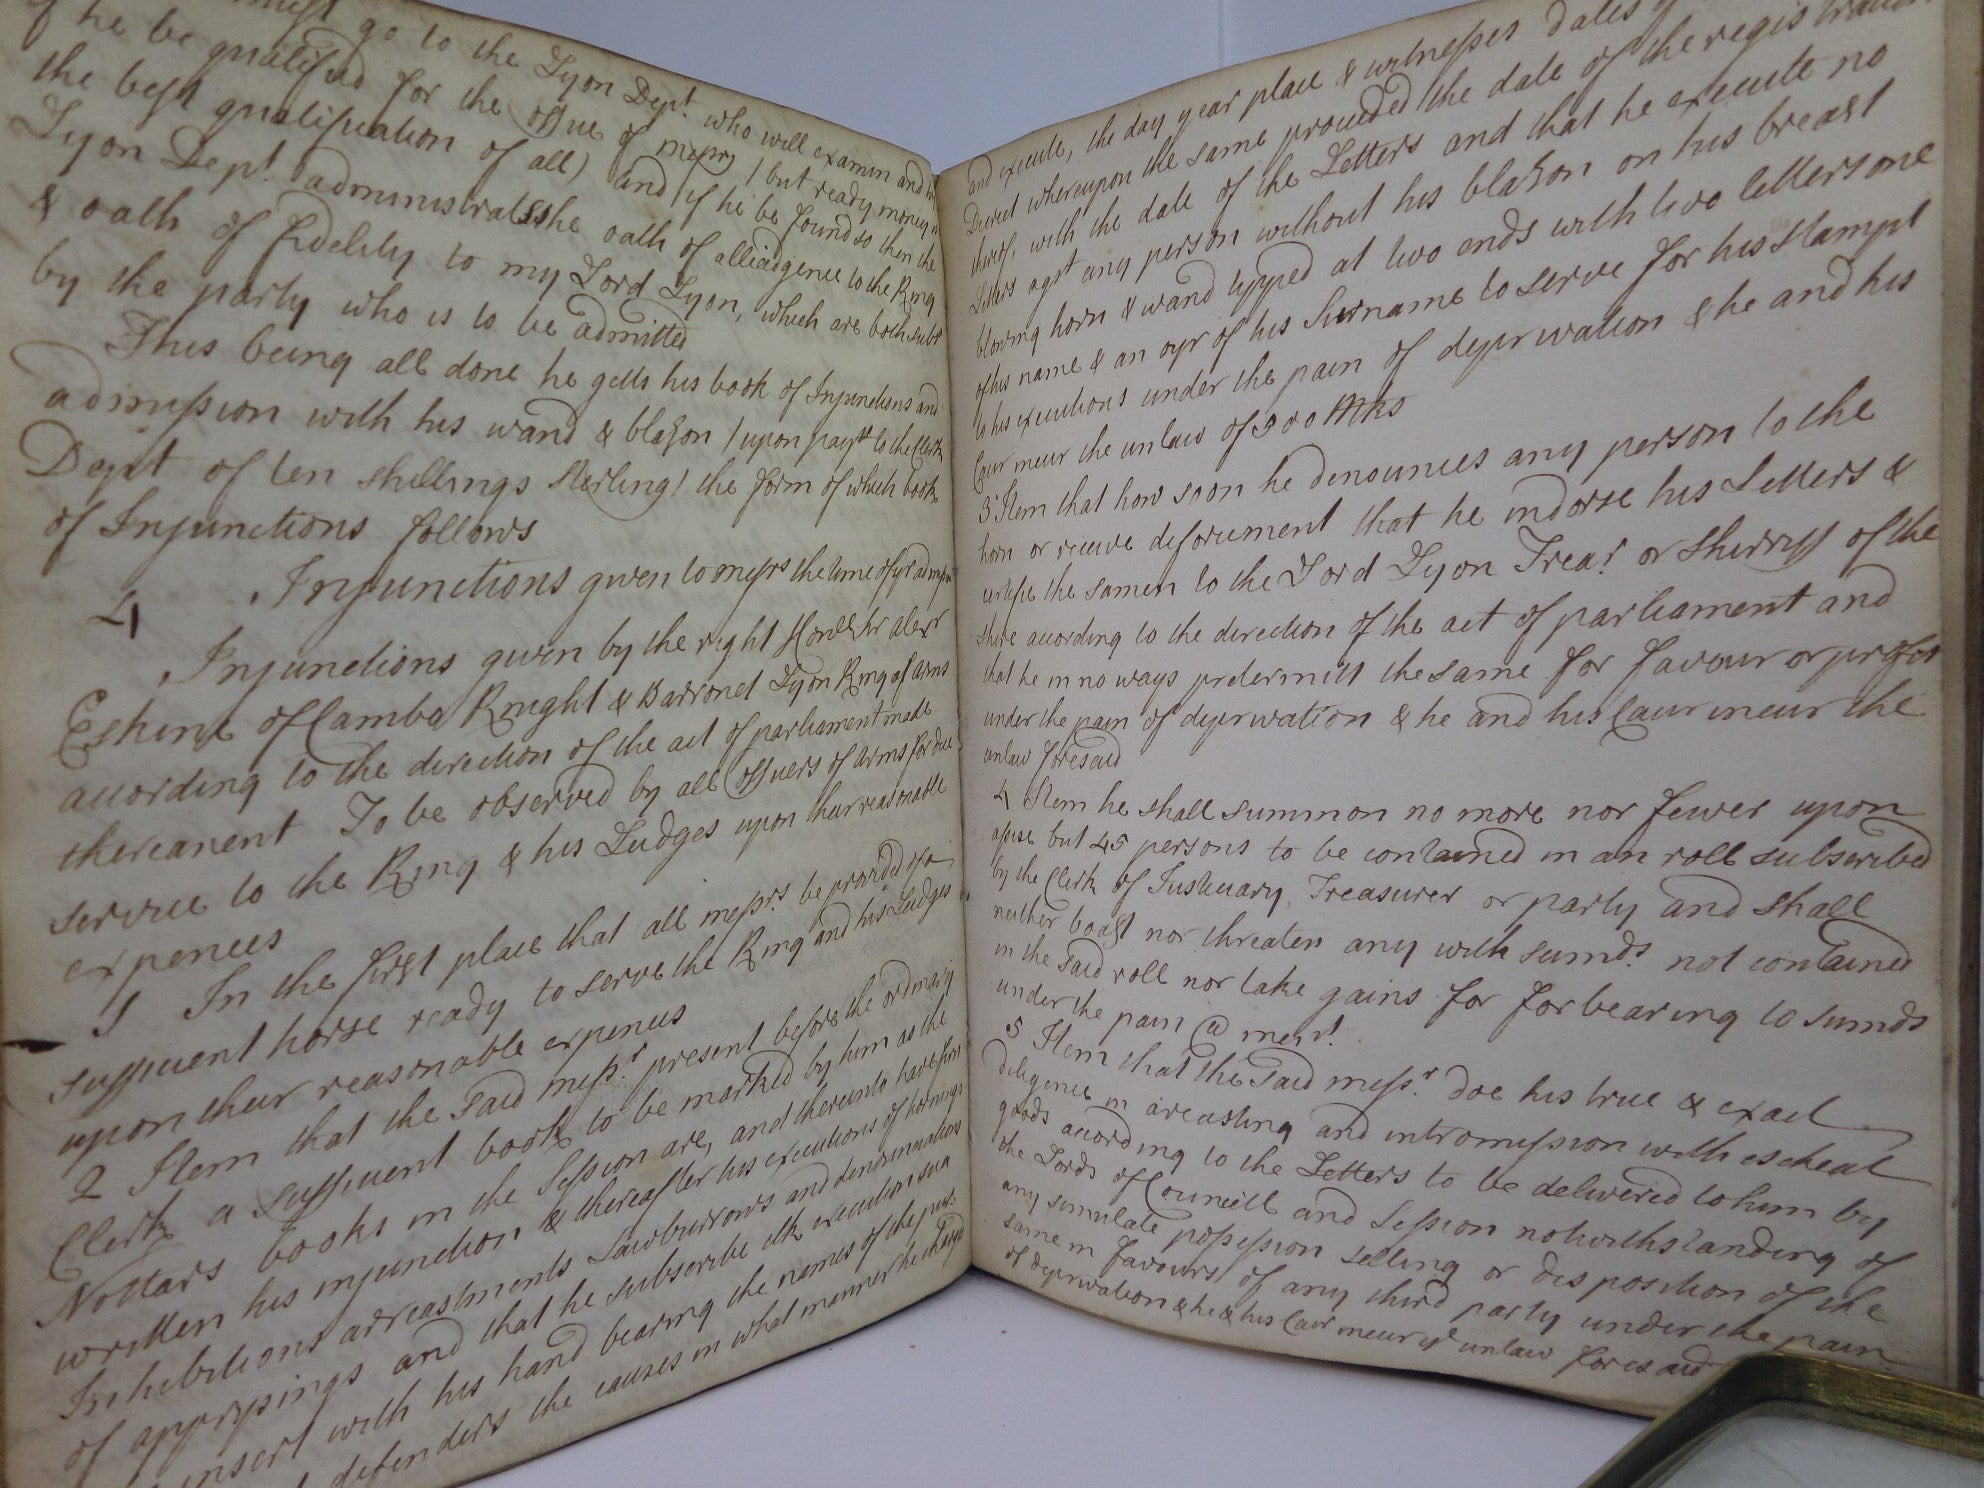 must go to the Lyon Dept. who will examin and
if he be qualified for the office of messry / but ready money is
the best qualification of all) and if he be found so then the
Lyon Dept. administrats the oath of alliadgence to the King
& oath of fidelity to my Lord Lyon, which are both subt
by the party who is to be admitted
This being all done he getts his book of Injunctions and
admission with his wand & blazon / upon payt. to the Clerk
Dept of ten shillings sterling / the form of which book
of Injunctions follows
4 Injunctions given to messrs the time of yr admission
Injunctions given by the right Honle Sr Alexr
Eskine of Cambo Knight & Barronet Lyon King of arms
according to the direction of the act of parliament made
thereanent To be observed by all officers of arms for due
service to the King & his Judges upon their reasonable
expences
1 In the first place that all messrs. be provided of a
sufficient horse ready to serve the King and his Judges
upon their reasonable expences
2 Item that the said messr. present before the ordinary
Clerk a sufficient book to be marked by him as the
Nottars books in the Session are, and thereunto have
written his injunction & thereafter his executions of hornings
Inhibitions arreastments Lawburrows and denunciations
of apprysings and that he subscribe ilk execution
insert with his hand bearing the names of the
defenders the causes in what manner he
and execute, the day year place & witnesses dates
Decreet whereupon the same proceeded the date of the registration
thereof, with the date of the Letters and that he execute no
Letters agst any person without his blazon on his breast
blowing horn & wand typped at two ends with two letters one
of his name & an oyr of his Surname to serve for his stampt
to his executions under the pain of deprivation & he and his
Caur incur the unlaw of 500 Mks
3 Item that how soon he denounces any person to the
horn or receive deforcement that he indorse his Letters &
certifie the samen to the Lord Lyon Trear. or Shirriff of the
shire according to the direction of the act of parliament and
that he in no ways pretermitt the same for favour or profit
under the pain of deprivation & he and his Caur incur the
unlaw foresaid
4 Item he shall summon no more nor fewer upon
assise but 45 persons to be contained in an roll subscribed
by the Clerk of Justiciary, Treasurer or party and shall
neither boast nor threaten any with sumds. not contained
in the said roll nor take gains for forbearing to sumds
under the pain
5 Item that the said messr. doe his true & exact
diligence in arreasting and intromission with escheat
goods according to the Letters to be delivered to him by
the Lords of Councill and Session notwithstanding of
any simulate possession selling or disposition of the
same in favours of any third party under the pain
of deprivation & he & his Caur incur ye unlaw foresaid